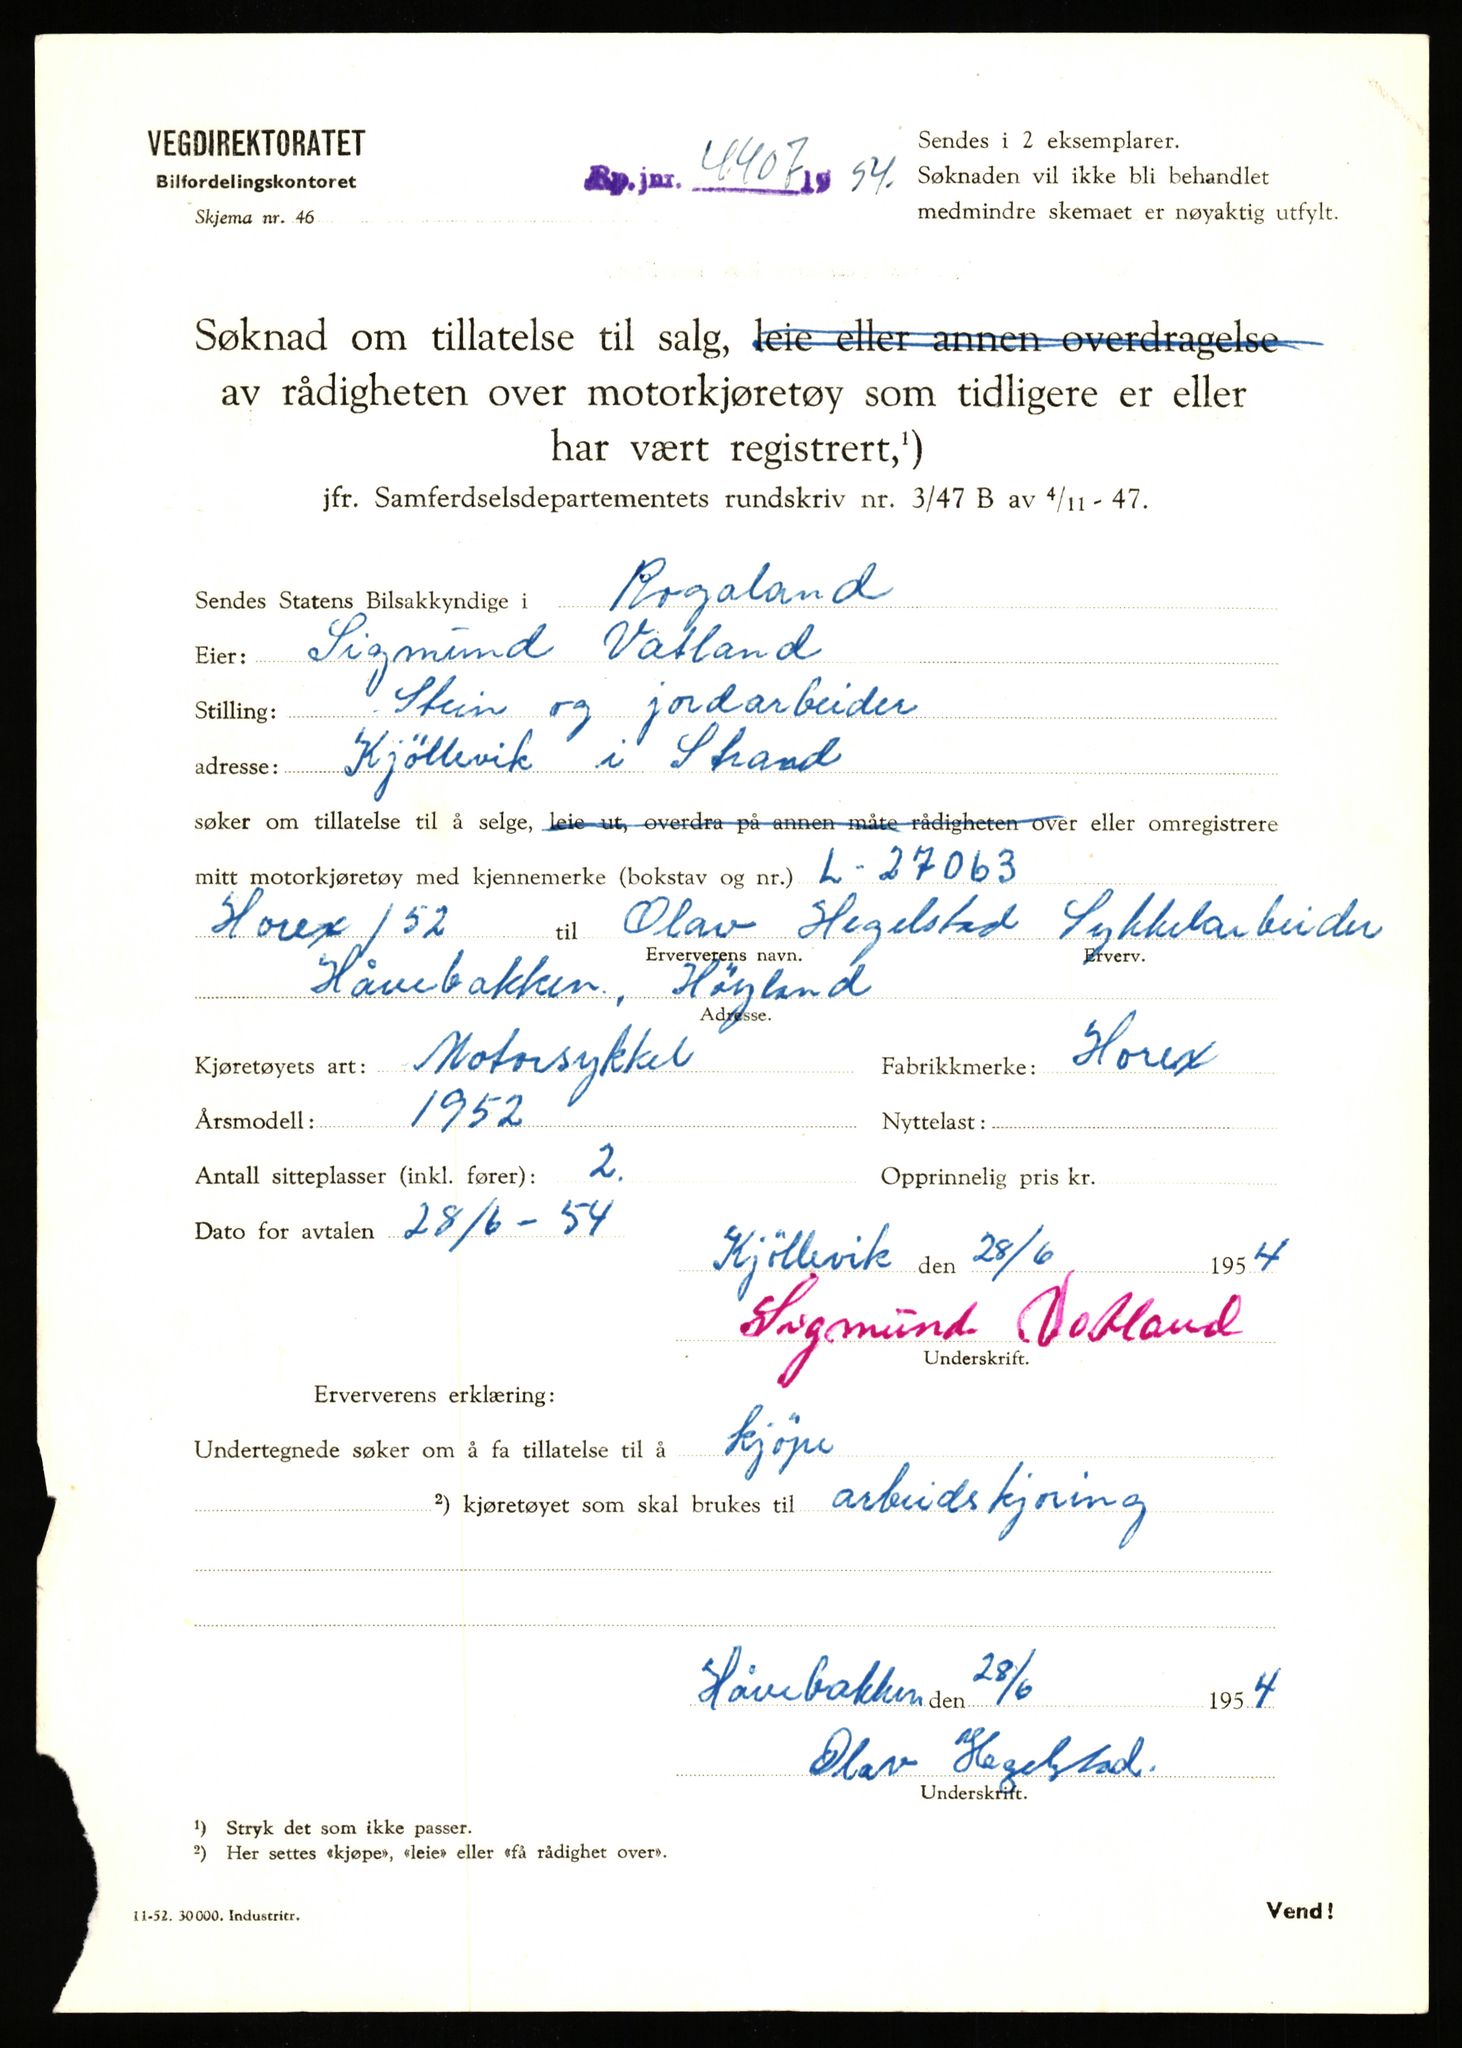 VEGDIREKTORATET
Bilfordelingskontoret
Skjema nr. 46
Rp. jnr. 4407 19 54.
Sendes i 2 eksemplarer.
Søknaden vil ikke bli behandlet
medmindre skemaet er nøyaktig utfylt.
Søknad om tillatelse til salg, leie eller annen overdragelse
av rådigheten over motorkjøretøy som tidligere er eller
har vært registrert,¹)
jfr. Samferdselsdepartementets rundskriv nr. 3/47 B av 4/11 - 47.
Sendes Statens Bilsakkyndige i Rogaland
Eier: Sigmund Vatland
Stilling: Stein og jordarbeider
adresse: Kjöllevik i Strand
søker om tillatelse til å selge, leie ut, overdra på annen måte rådigheten over eller omregistrere
mitt motorkjøretøy med kjennemerke (bokstav og nr.) L - 27063
Horex / 52 til Olav Hegelstad Sykkelarbeider
Erververens navn. Erverv.
Håvebakken, Höyland
Adresse.
Kjøretøyets art: Motorsykkel Fabrikkmerke: Horex
Årsmodell: 1952 Nyttelast:
Antall sitteplasser (inkl. fører): 2. Opprinnelig pris kr.
Dato for avtalen 28/6 - 54
Kjöllevik den 28/6 1954
Sigmund Vatland
Underskrift.
Erververens erklæring:
Undertegnede søker om å fa tillatelse til å kjöpe
²) kjøretøyet som skal brukes til arbeidskjoring
Håvebakken den 28/6 1954
Olav Hegelstad.
Underskrift.
¹) Stryk det som ikke passer.
²) Her settes «kjøpe», «leie» eller «få rådighet over».
11-52. 30 000. Industritr.
Vend!